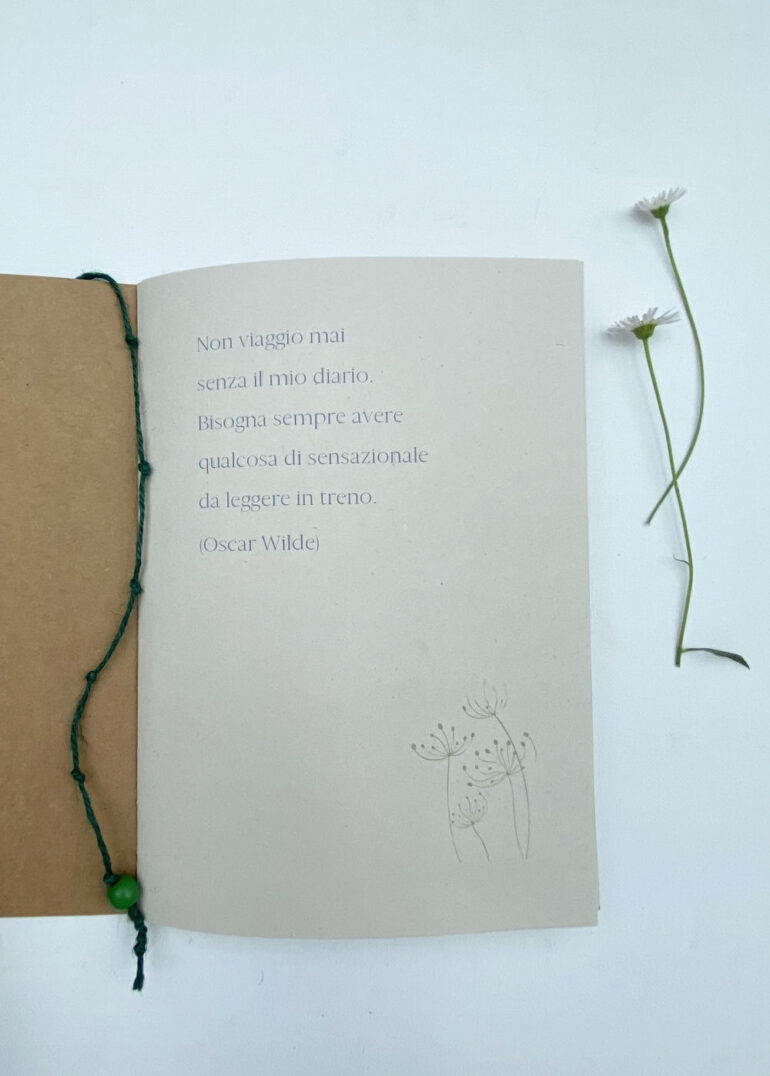 Non viaggio mai
senza il mio diario.
Bisogna sempre avere
qualcosa di sensazionale
da leggere in treno.
(Oscar Wilde)